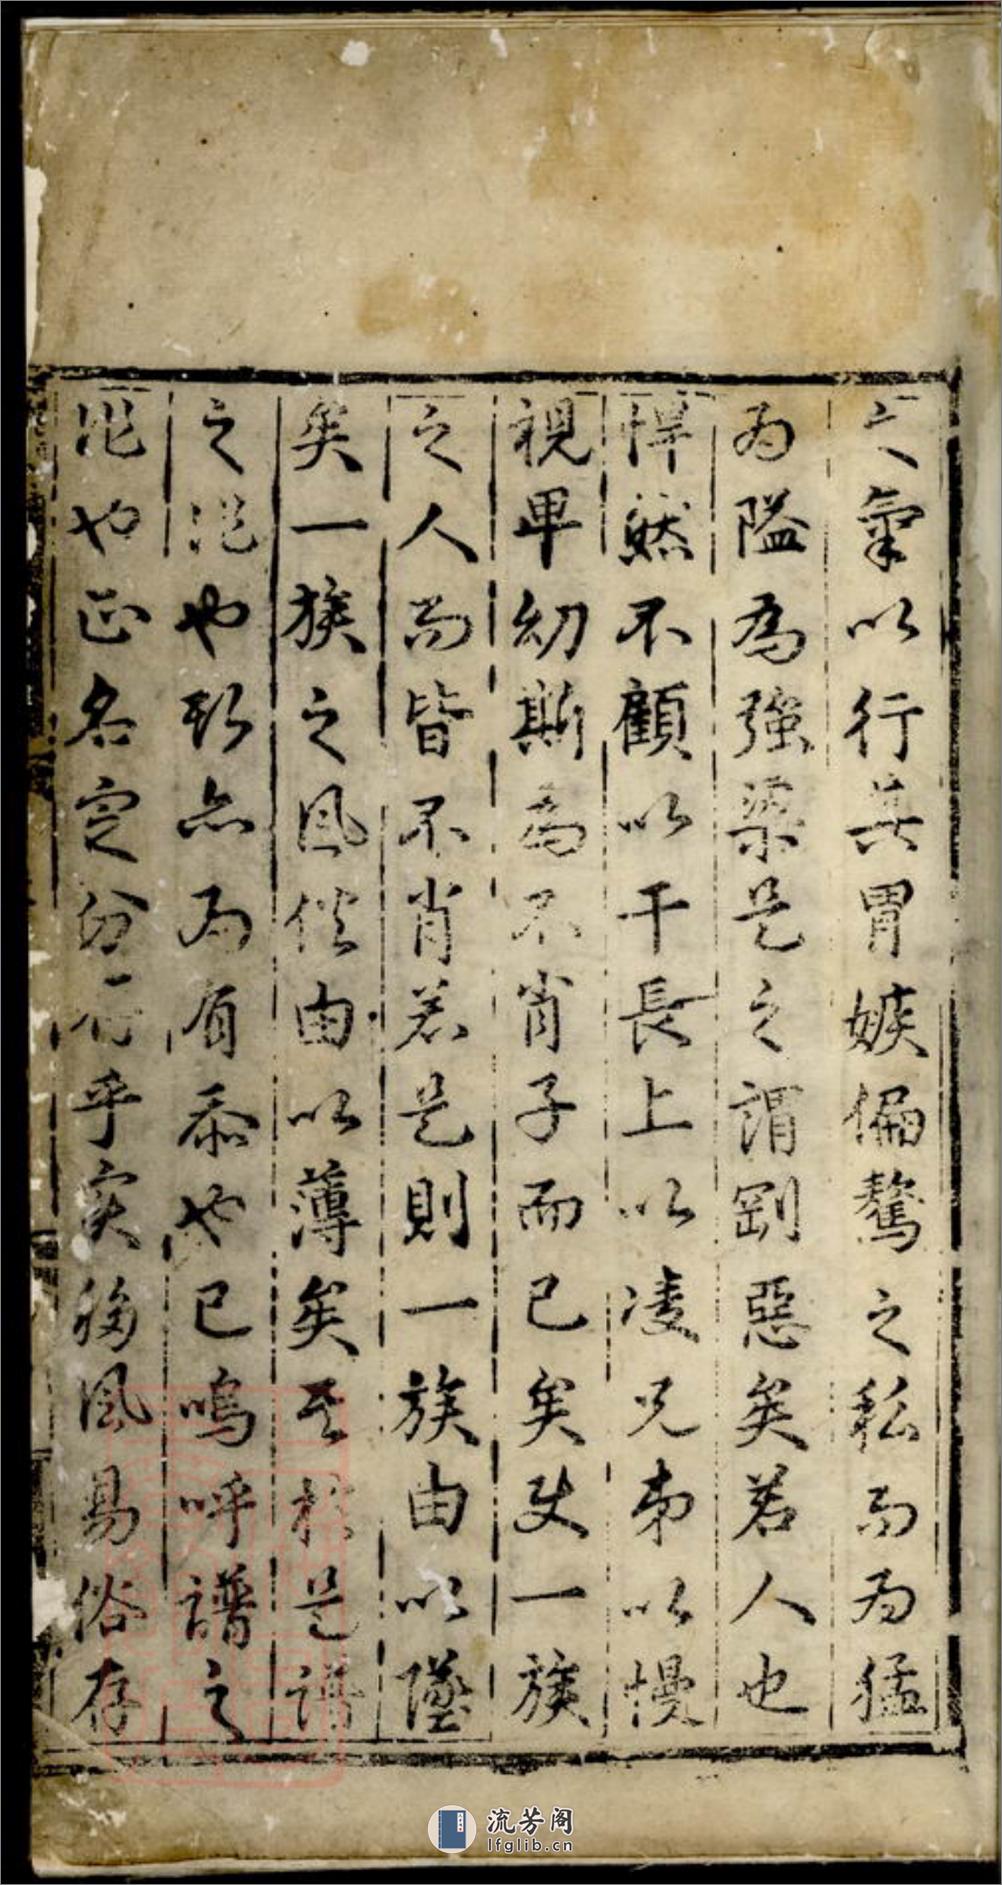 之氣以行其胃嫉偏驁之私而为猛
为隘為強梁是之謂剛惡矣若人也
悍然不顧以干長上以凌兄弟以慢
視卑幼斯為不肖子而已矣使一族
之人而皆不肖若是則一族由以墜
矣一族之風俗由以薄矣其於是譜
之也亦为有忝也已嗚呼譜之
也正名定分乎實移風易俗存
流芳阁
lfglib.cn